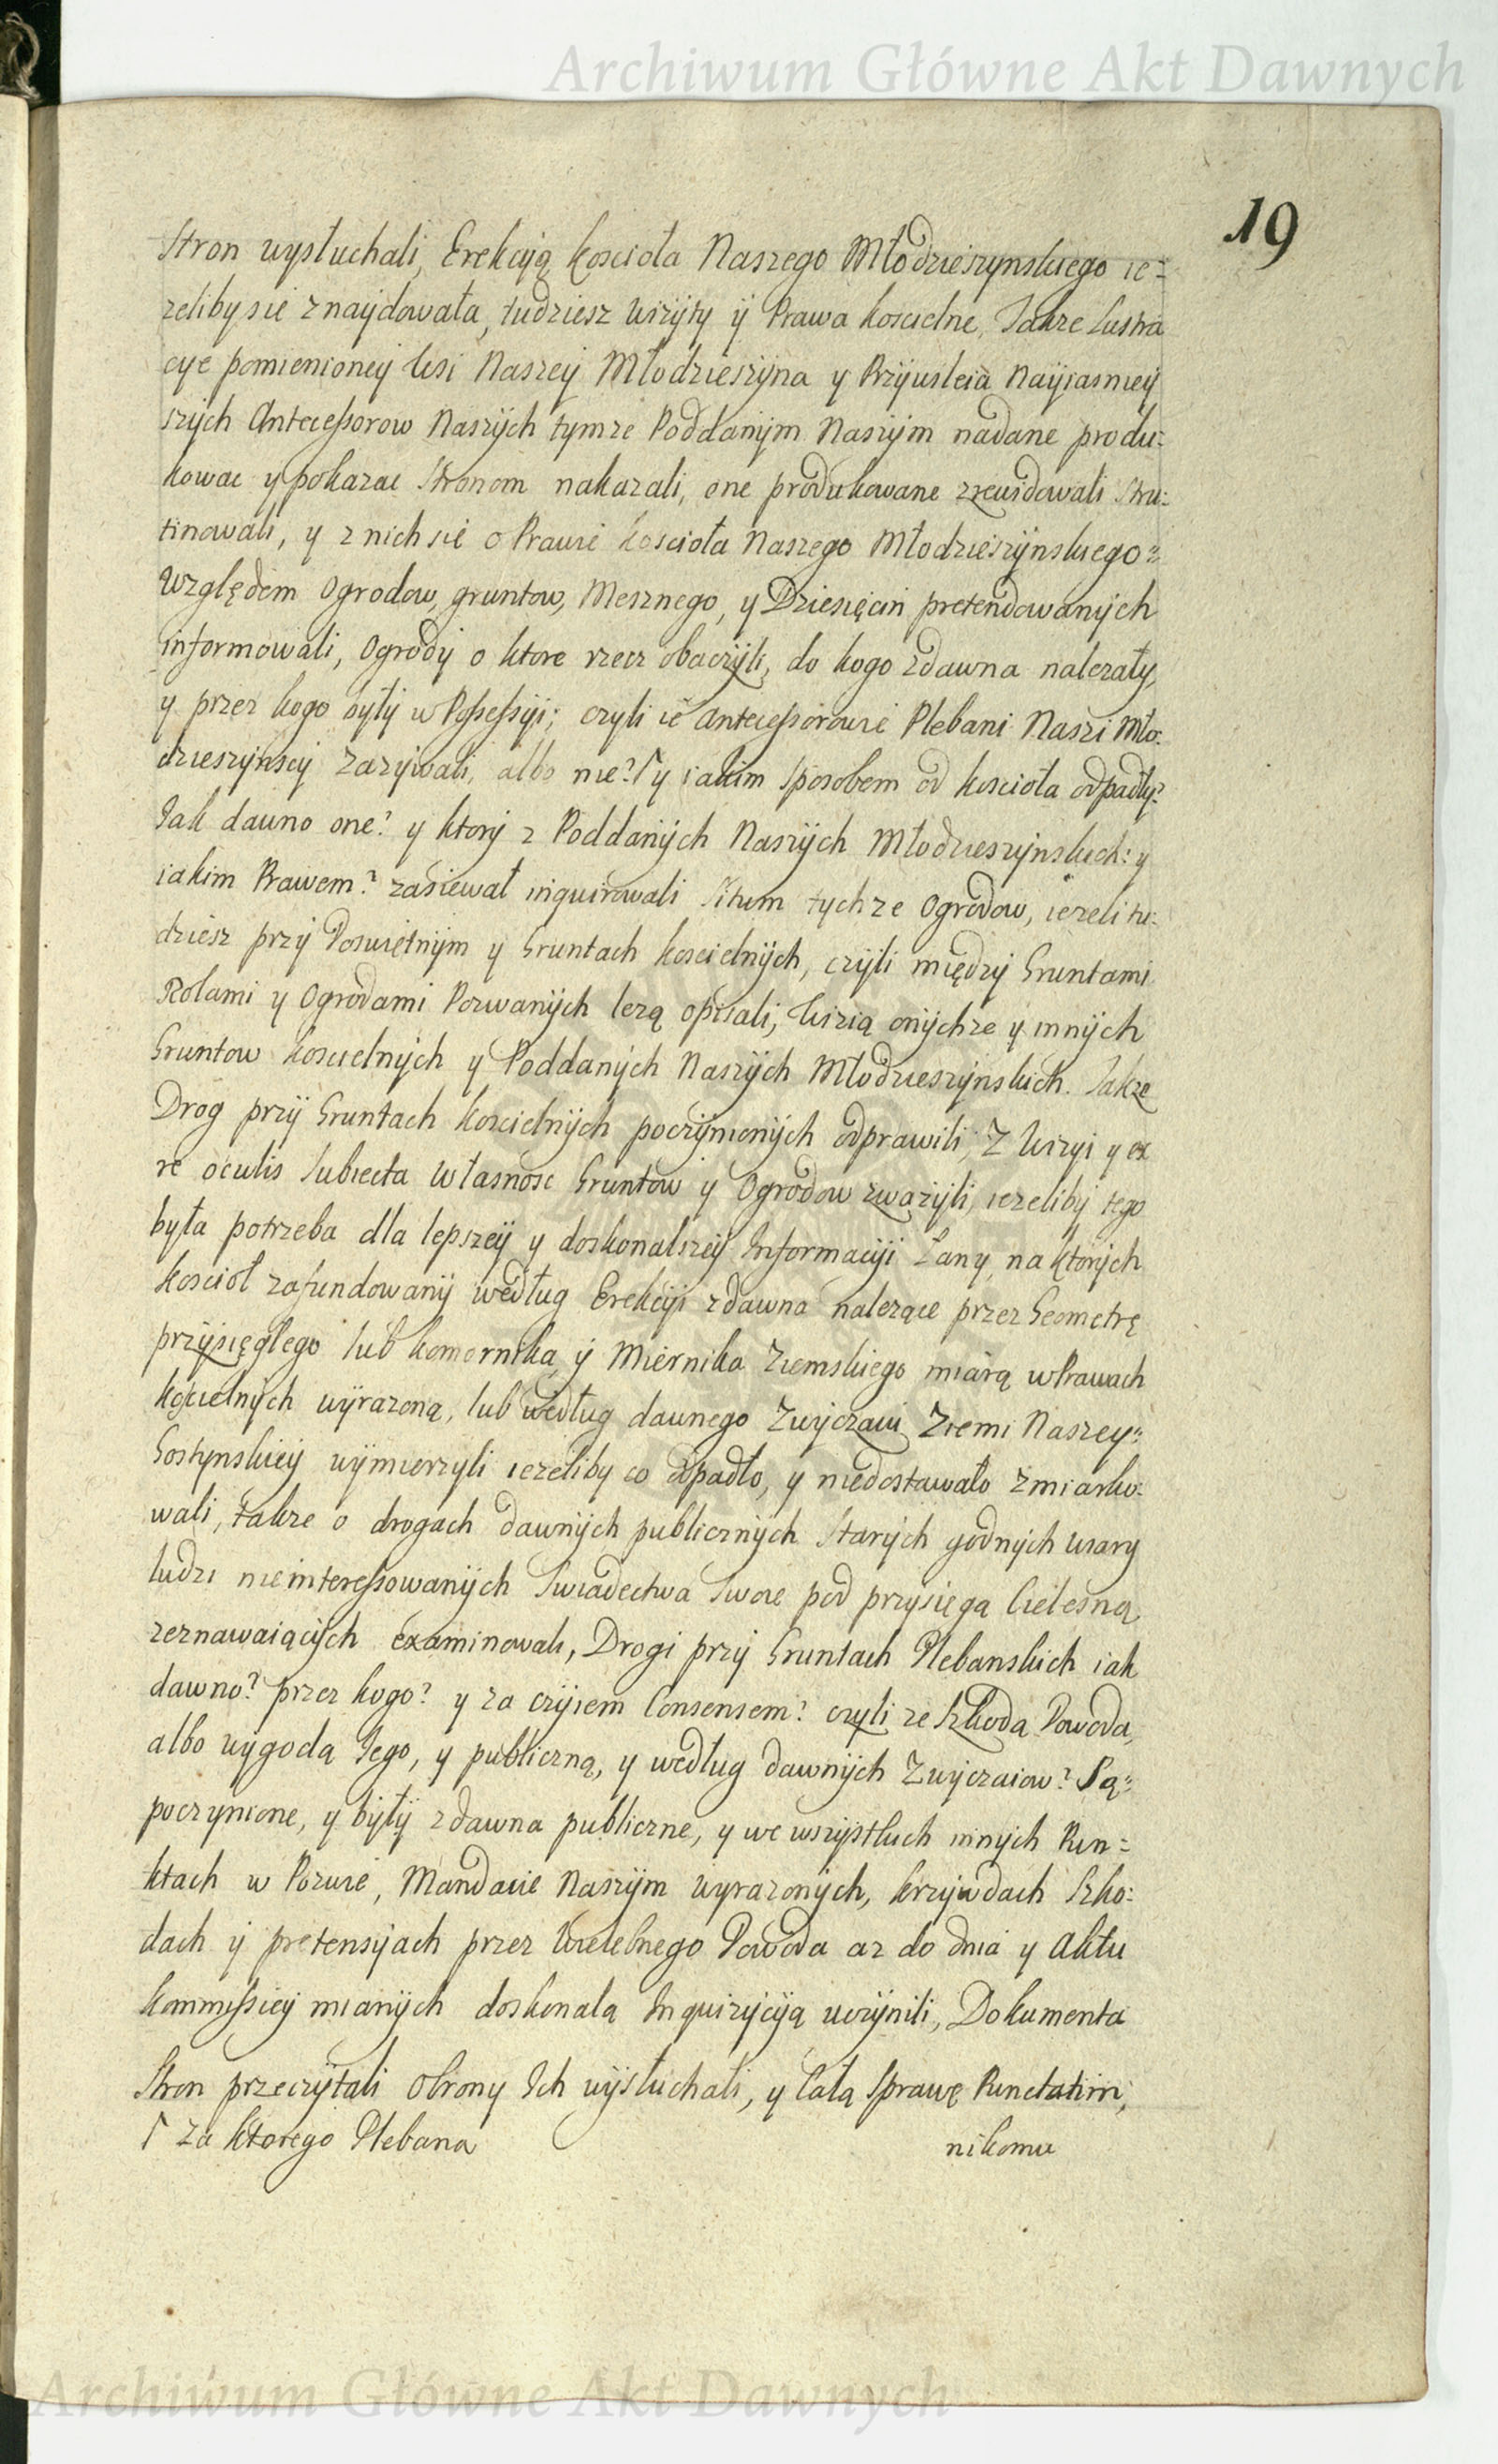 Archiwum Główne Akt Dawnych
19
Stron wysłuchali, Erekcyią koscioła Naszego Młodzieszynskiego ie=
zeliby sie znaydowała, tudziesz Wizyty ÿ Prawa koscielne, Takze Lustra
cye pomienioney Wsi Naszey Młodzieszyna y Przywileia Nayiasniey
szych Antecessorow Naszych tymze Poddanym Naszym nadane produ=
kowac y pokazac Stronom nakazali, one produkowane zrewidowali Skru=
tinowali, y z nich sie o Prawie kosciola Naszego Młodzieszynskiego=
Względem Ogrodow, gruntow, Mesznego, y Dziesięcin pretendowanych
informowali, Ogrody o ktore rzecz obaczyli, do kogo zdawna nalezały,
y przez kogo były w Possessyi; czyli ie Antecessorowie Plebani Naszi Mło=
dzieszynscy zazywali, albo nie? Γ y iakim Sposobem od kosciola odpadły?
Jak dawno one? y ktory z Poddanych Naszych Młodzieszynskich: y
iakim Prawem? zasiewał inquirowali Situm tychze Ogrodow, iezeli tu=
dziesz przy Poswiętnym y Gruntach koscielnych, czyli między Gruntami
Rolami y Ogrodami Pozwanych lezą opisali, Wizią onychze y innych
Gruntow koscielnych y Poddanych Naszych Młodzieszynskich. Takze
Drog przy Gruntach koscielnych poczynionych odprawili, Z Wizyi y ex
re oculis Subiecta Własnosc Gruntow y Ogrodow zwazyli, iezeliby tego
była potrzeba dla lepszey y doskonalszey Informacyi Łany, na ktorych
kosciol zafundowany według Erekcyi zdawna nalezące przez Geometrę
przysięgłego lub komornika ÿ Miernika Ziemskiego miarą w Prawach
koscielnych wyrazoną, lub według dawnego Zwyczaiu Ziemi Naszey=
Gostynskiey wymierzyli iezeliby co odpadło, y niedostawało zmiarko=
wali, takze o drogach dawnych publicznych Starych godnych wiary
ludzi nieinteressowanych Swiadectwa Swoie pod przysięgą Cielesną
zeznawaiących examinowali, Drogi przy Gruntach Plebanskich iak
dawno? przez kogo? y za czyiem Consensem? czyli ze Szkodą Powoda,
albo wygodą Jego, y publiczną, y według dawnych Zwyczaiow? Są=
poczynione, y były zdawna publiczne, y we wszystkich innych Pun=
ktach w Pozwie, Mandacie Naszym wyrazonych, krzywdach Szko=
dach ÿ pretensyach przez Wielebnego Powoda az do dnia y Aktu
kommissiey mianych doskonalą Inquizycyią uczynili, Dokumenta
Stron przeczytali Obrony Ich wysłuchali, y Całą Sprawę Punctatim,
Γ za ktorego Plebana
nikomu
Archiwum Główne Akt Dawnych